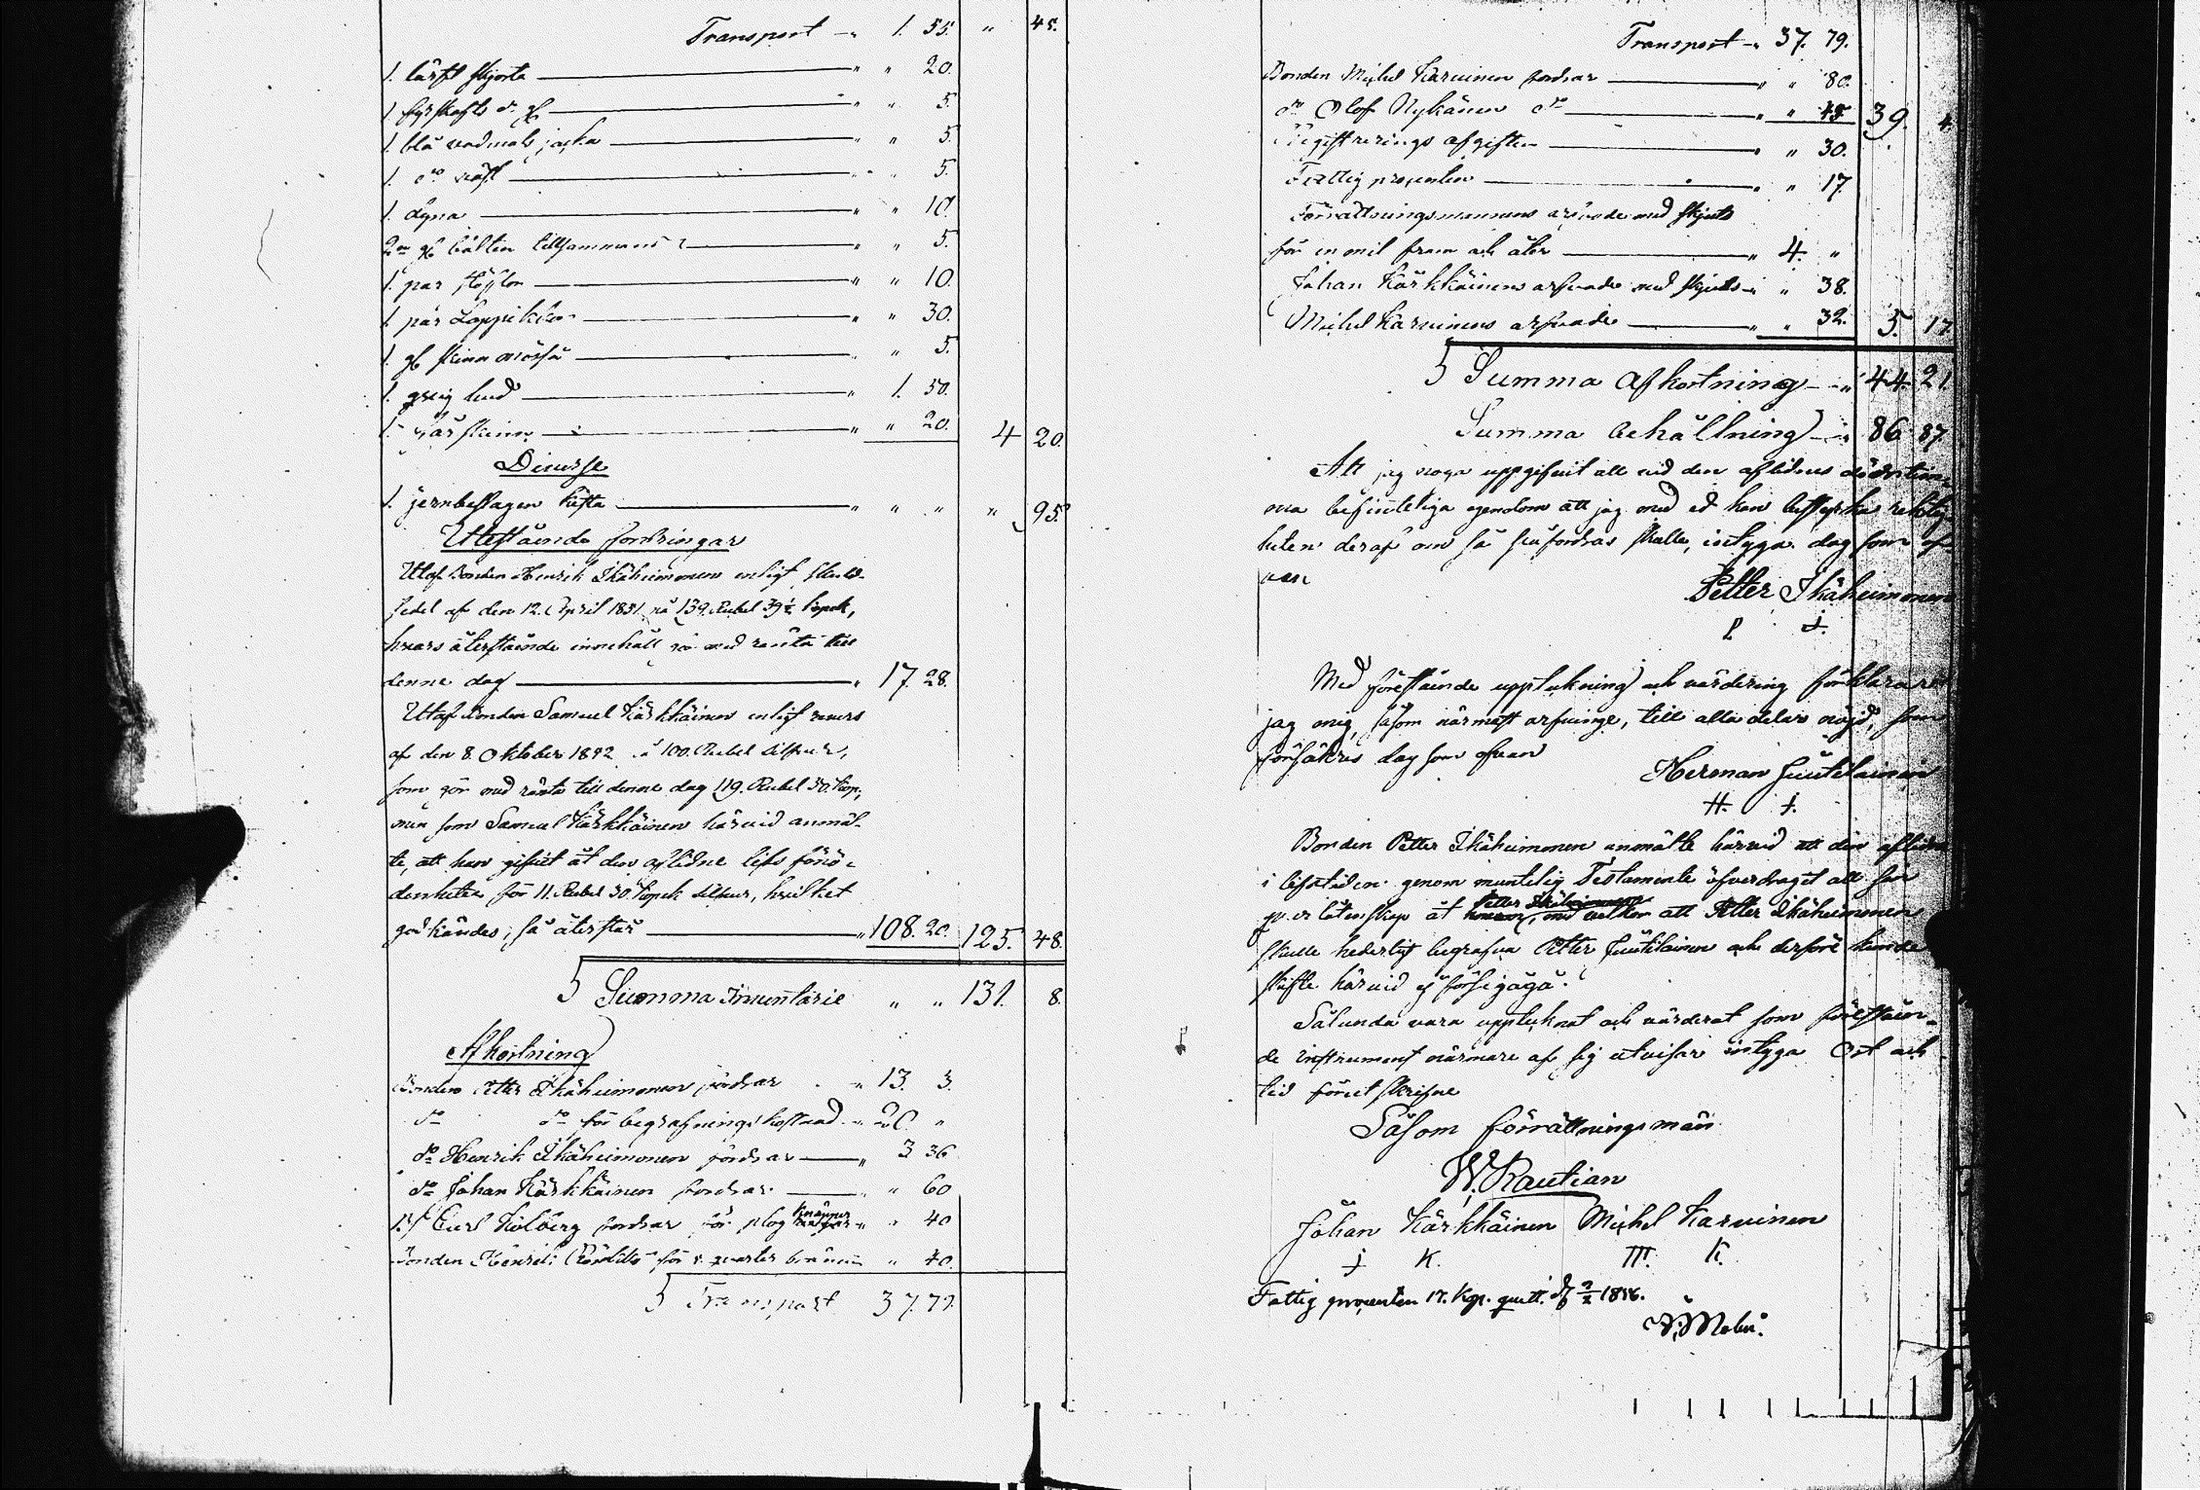 Transport — " 1. 55. " 45.
1. lärft skjorta — " " 20.
1 fyrskafts do gl — " " 5.
1. blå vadmals jacka — " " 5.
1. do väst — " " 5.
1. dyna — " " 10.
2ne gl bälten tillsammans — " " 5.
1. par stöflor — " " 10.
1. par Lappikkor — " " 30.
1. gl skinn mössa — " " 5.
1. hud — " 1. 50.
1. fårskinn — " " 20. 4 20.
Diverse
1. jernbeslagen kista — " " " " 95.
Utestående fordringar
Utaf Bonden Henrik Ikäheimonen enligt skuld-
sedel af den 12. April 1851 på 139. Rubel 39½ kopek,
hvars återstående innehåll gör med ränta till
denne dag — " 17. 28.
Utaf Bonden Samuel Kärkkäinen enligt revers
af den 8. Oktober 1892 å 100. Rubel silfver,
som gör med ränta till denne dag 119. Rubel 50. kop,
men som Samuel Kärkkäinen härvid anmäl-
te, att han gifvit åt den aflidne lifs förnö-
denheter för 11. Rubel 30. kopek silfver, hvilket
godkändes, så återstår — " 108. 20. 125. 48.
S Summa Inventarie " " 131. 8.
Afkortning
Bonden Petter Ikäheimonen fordrar " 13. 3.
do do för begrafningskostnad " 20 "
do Henrik Ikäheimonen fordrar — " 3 36
do Johan Kärkkäinen fordrar — " " 60
Carl Kölberg fordrar för plog " " 40
Bonden Henrik för 1 qvarter bränvin " 40.
S Transport 37. 79.
Transport — " 37. 79.
Bonden Michel Karvinen fordrar — " " 80.
do Olof Nykänen do — " " 45. 39. 4.
Registrerings afgiften — " " 30.
Fattig procenten — " " 17
Förrättningsmannens arvode med skjuts
för en mil fram och åter — " 4. "
Johan Kärkkäinens arfvode med skjuts " " 38.
Michel Karvinens arfvode — " " 32. 5. 17
S Summa Afkortning — " 44. 21.
Summa behållning — " 86. 87.
Att jag noga uppgifvit all vid den aflidnes dödstim-
ma befinteliga egendom att jag med ed kan bestyrka riktig-
heten deraf om så påfordras skulle, intygar dag som of-
van
Petter Ikäheimonen
P. J.
Med förestående upptekning och värdering förklarar
jag mig, såsom närmast arfvinge, till alla delar nöjd, som
försäkras dag som ofvan
Herman Juutilainen
H. J.
Bonden Petter Ikäheimonen anmälte härvid att den aflidne
i lifstiden genom muntelig Testamente öfverdragit all sin
qvarlåtenskap åt Petter Ikäheimonen, med vilkor att Petter Ikäheimonen
skulle hederligt begrafva Petter Juutilainen och derföre kunde
skifte härvid ej försiggågå.
Sålunda vara upptecknat och värderat som föreståen-
de instrument närmare af sig utvisar intyga Ort och
tid förut skrifne
Såsom förrättningsmän
W. Rautian
Johan Kärkkäinen Michel Karvinen
J K. M. K.
Fattig procenten 17. Kop. quitt. d 1856.